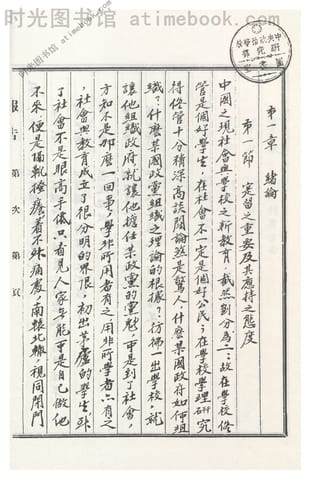 时光图书馆 atimebook.com
第一章 緒論
第一節 實習之重要及其應持之態度
中國之現社會與學校之新教育，截然劃分為二：故在學校儘
管是個好學生，在社會不一定是個好公民；在學校學理研究
得儘管十分精深高談闊論煞是驚人，什麼某國政府如何組
織？什麼某國政黨組織之理論的根據？：彷彿一出學校，就
讓他組織政府就讓他擔任某政黨的黨魁，可是到了社會，
方知不是那麼一回事，學非所用者有之用非所學者亦有之
，社會與教育成立了很分明的界限，初出茅廬的學生跳
了社會不是眼高手低，只看見人家無能可是自已做他
不來，便是隔靴搔癢着不來痛處，南轅北轍，視同閉門
報告 第 次 第 頁
时光图书馆 atimebook.com